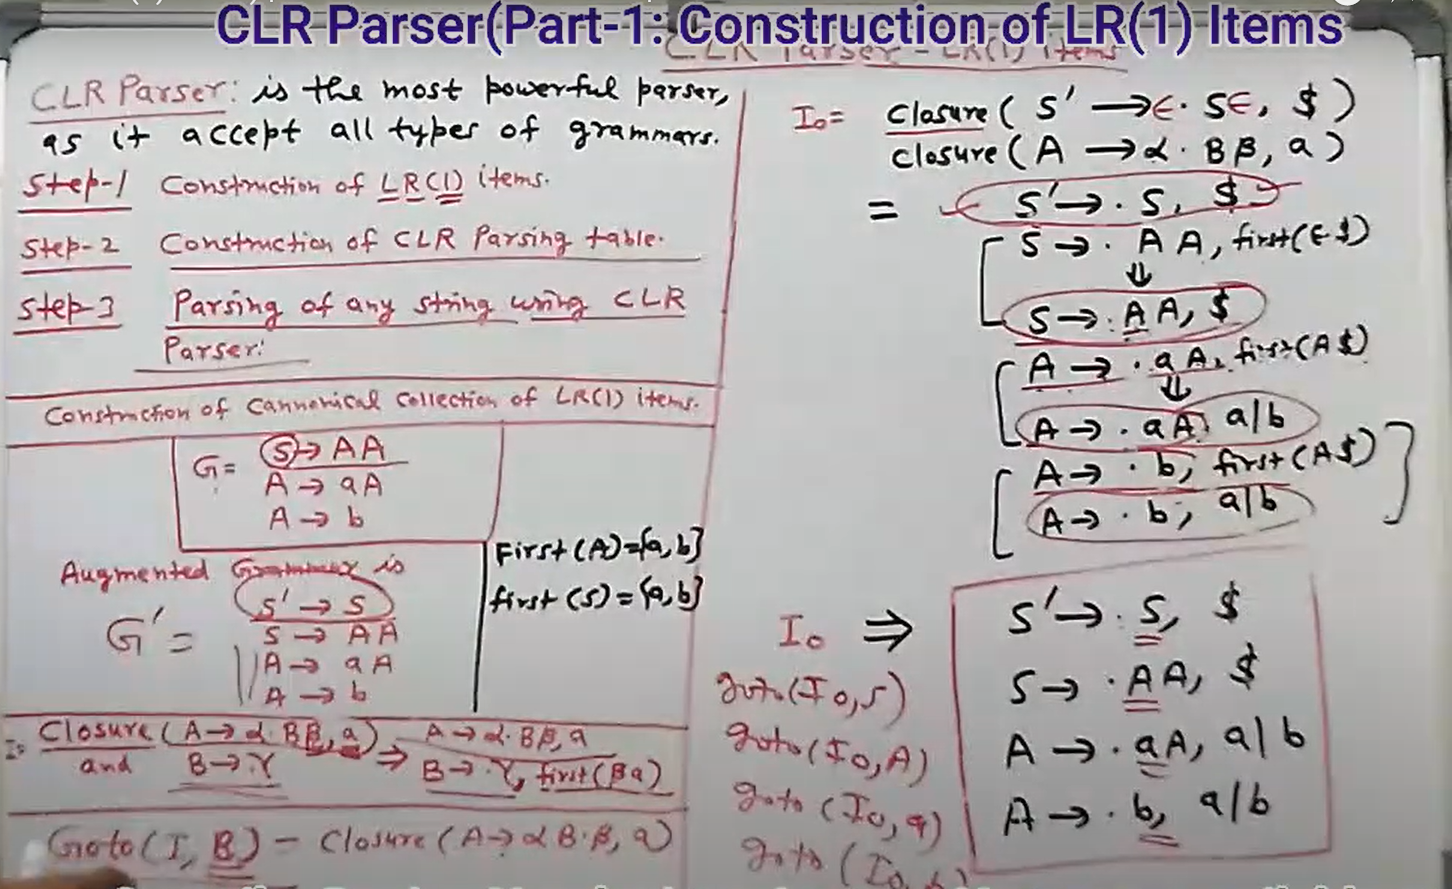 CLR Parser(Part-1: Construction of LR(1) Items
CLR Parser - LR(1) items
CLR Parser: is the most powerful parser,
as it accept all types of grammars.
Step-1 Construction of LR(1) items.
Step-2 Construction of CLR Parsing table.
Step-3 Parsing of any string using CLR
Parser:
Construction of Cannonical Collection of LR(1) items.
G = S → AA
A → aA
A → b
Augmented Grammar is
G' = S' → S
S → AA
A → aA
A → b
First(A)={a,b}
first(S)={a,b}
Closure (A → α·Bβ, a) ⇒ A → α·Bβ, a
and B → ·γ B → ·γ, first(βa)
Goto(I, B) - Closure (A → αB·β, a)
I₀ = Closure ( S' → ϵ· Sϵ, $ )
Closure ( A → α· Bβ, a )
= S' → · S, $
S → · AA, first(ϵ $)
⇓
S → · AA, $
A → · aA, first(A$)
⇓
A → · aA, a|b
A → · b, first(A$)
A → · b, a|b
I₀ ⇒
S' → · S, $
S → · AA, $
A → · aA, a|b
A → · b, a|b
goto(I₀,S)
goto(I₀,A)
goto(I₀,a)
goto(I₀,b)